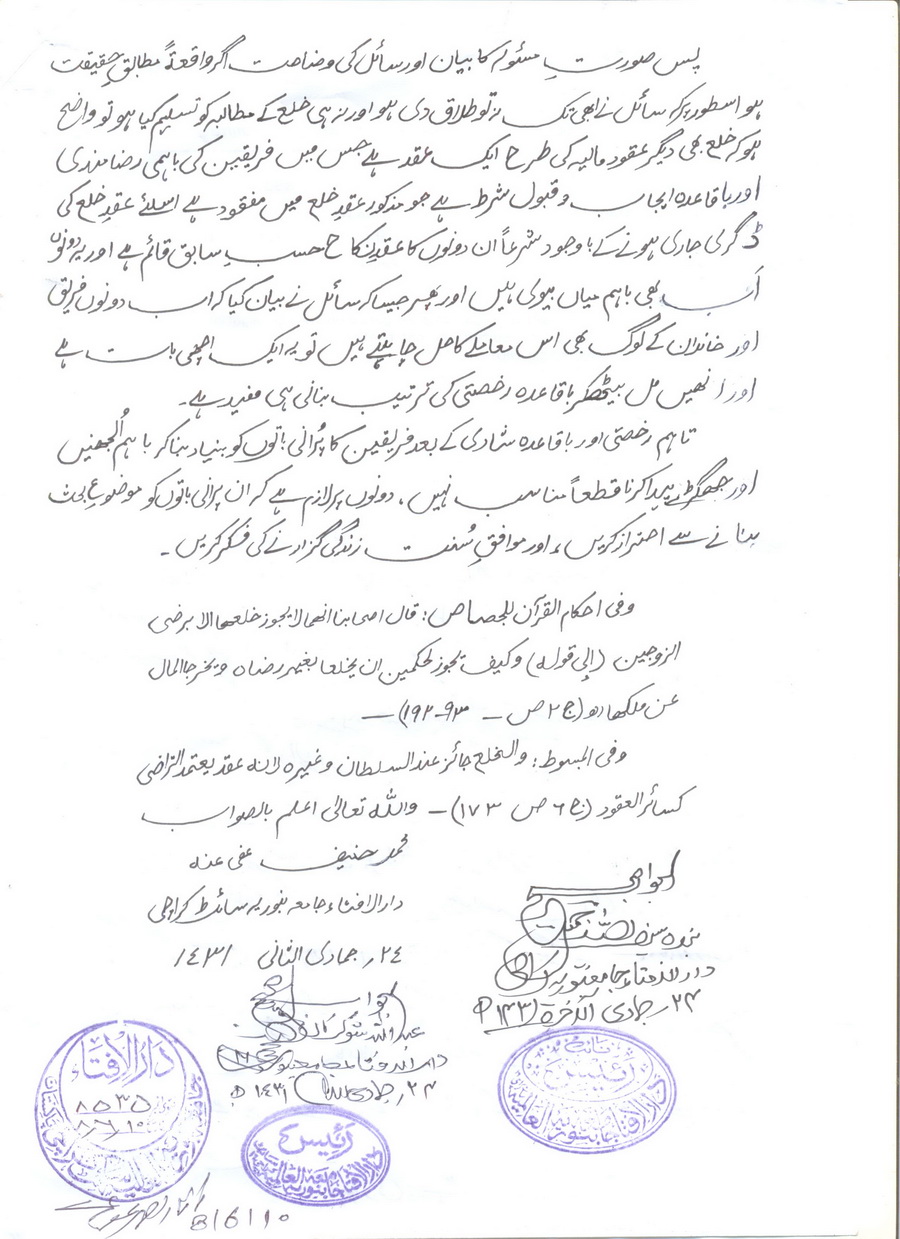 پس صورتِ مسئولہ کا بیان اور سائل کی وضاحت اگر واقعۃً مطابقِ حقیقت
ہو اسطور پر کہ سائل نے ابھی تک نہ تو طلاق دی ہو اور نہ ہی خلع کے مطالبہ کو تسلیم کیا ہو تو واضح
ہو کہ خلع بھی دیگر عقود مالیہ کی طرح ایک عقد ہے جس میں فریقین کی باہمی رضامندی
اور باقاعدہ ایجاب و قبول شرط ہے جو مذکور عقدِ خلع میں مفقود ہے اسلئے عقدِ خلع کی
ڈگری جاری ہونے کے باوجود شرعاً ان دونوں کا عقدِ نکاح حسبِ سابق قائم ہے اور یہ دونوں
اَب بھی باہم میاں بیوی ہیں اور پھر جیسا کہ سائل نے بیان کیا کہ اب دونوں فریق
اور خاندان کے لوگ بھی اس معاملے کا حل چاہتے ہیں تو یہ ایک اچھی بات ہے
اور انھیں مل بیٹھکر باقاعدہ رخصتی کی ترتیب بنانی ہی مفید ہے۔
تاہم رخصتی اور باقاعدہ شادی کے بعد فریقین کا پُرانی باتوں کو بنیاد بنا کر باہم اُلجھنیں
اور جھگڑے پیدا کرنا قطعاً مناسب نہیں، دونوں پر لازم ہے کہ ان پرانی باتوں کو موضوعِ بحث
بنانے سے احتراز کریں، اور موافقِ سُنت زندگی گزارنے کی فکر کریں۔
وفی احکام القرآن للجصاص: قال اصحابنا انھما لا یجوز خلعھما الا برضی
الزوجین (إلی قولہ) وکیف یجوز للحکمین ان یخلعا بغیر رضاہ ویخرجا المال
عن ملکھا اھ (ج ۲ ص ـ ۹۳-۱۹۲) ـ
وفی المبسوط: والخلع جائز عند السلطان وغیرہ لانہ عقد یعتمد التراضی
کسائر العقود (ج ۶ ص ۱۷۳) ـ واللہ تعالیٰ اعلم بالصواب
محمد حنیف عفی عنہ
دارالافتاء جامعہ بنوریہ سائٹ کراچی
۲۴؍ جمادی الثانی ۱۴۳۱/
الجواب
دارالافتاء جامعہ بنوریہ کراچی
۲۴؍ جمادی الآخرۃ ۱۴۳۱ھ
الجواب
عبداللہ شوکت
دارالافتاء جامعہ بنوریہ
۲۴؍ جمادی ۱۴۳۱ھ
رئیس
دارالافتاء جامعہ بنوریہ العالمیہ
رئیس
دارالافتاء جامعہ بنوریہ العالمیہ
دَارُالاِفتَاء
۸۵۳۵
۸/۶/۱۰
8/6/10